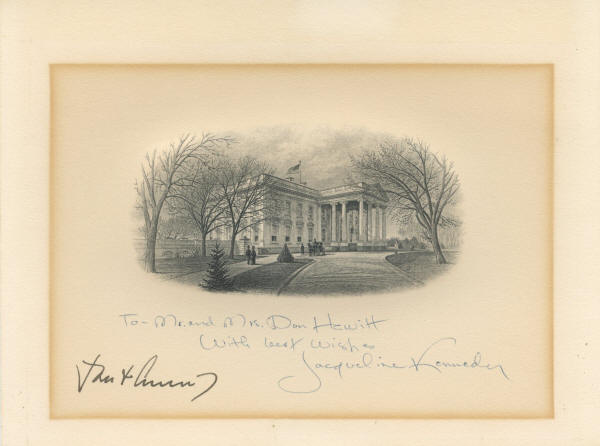 To - Mr. and Mrs. Don Hewitt
With best wishes
Jacqueline Kennedy